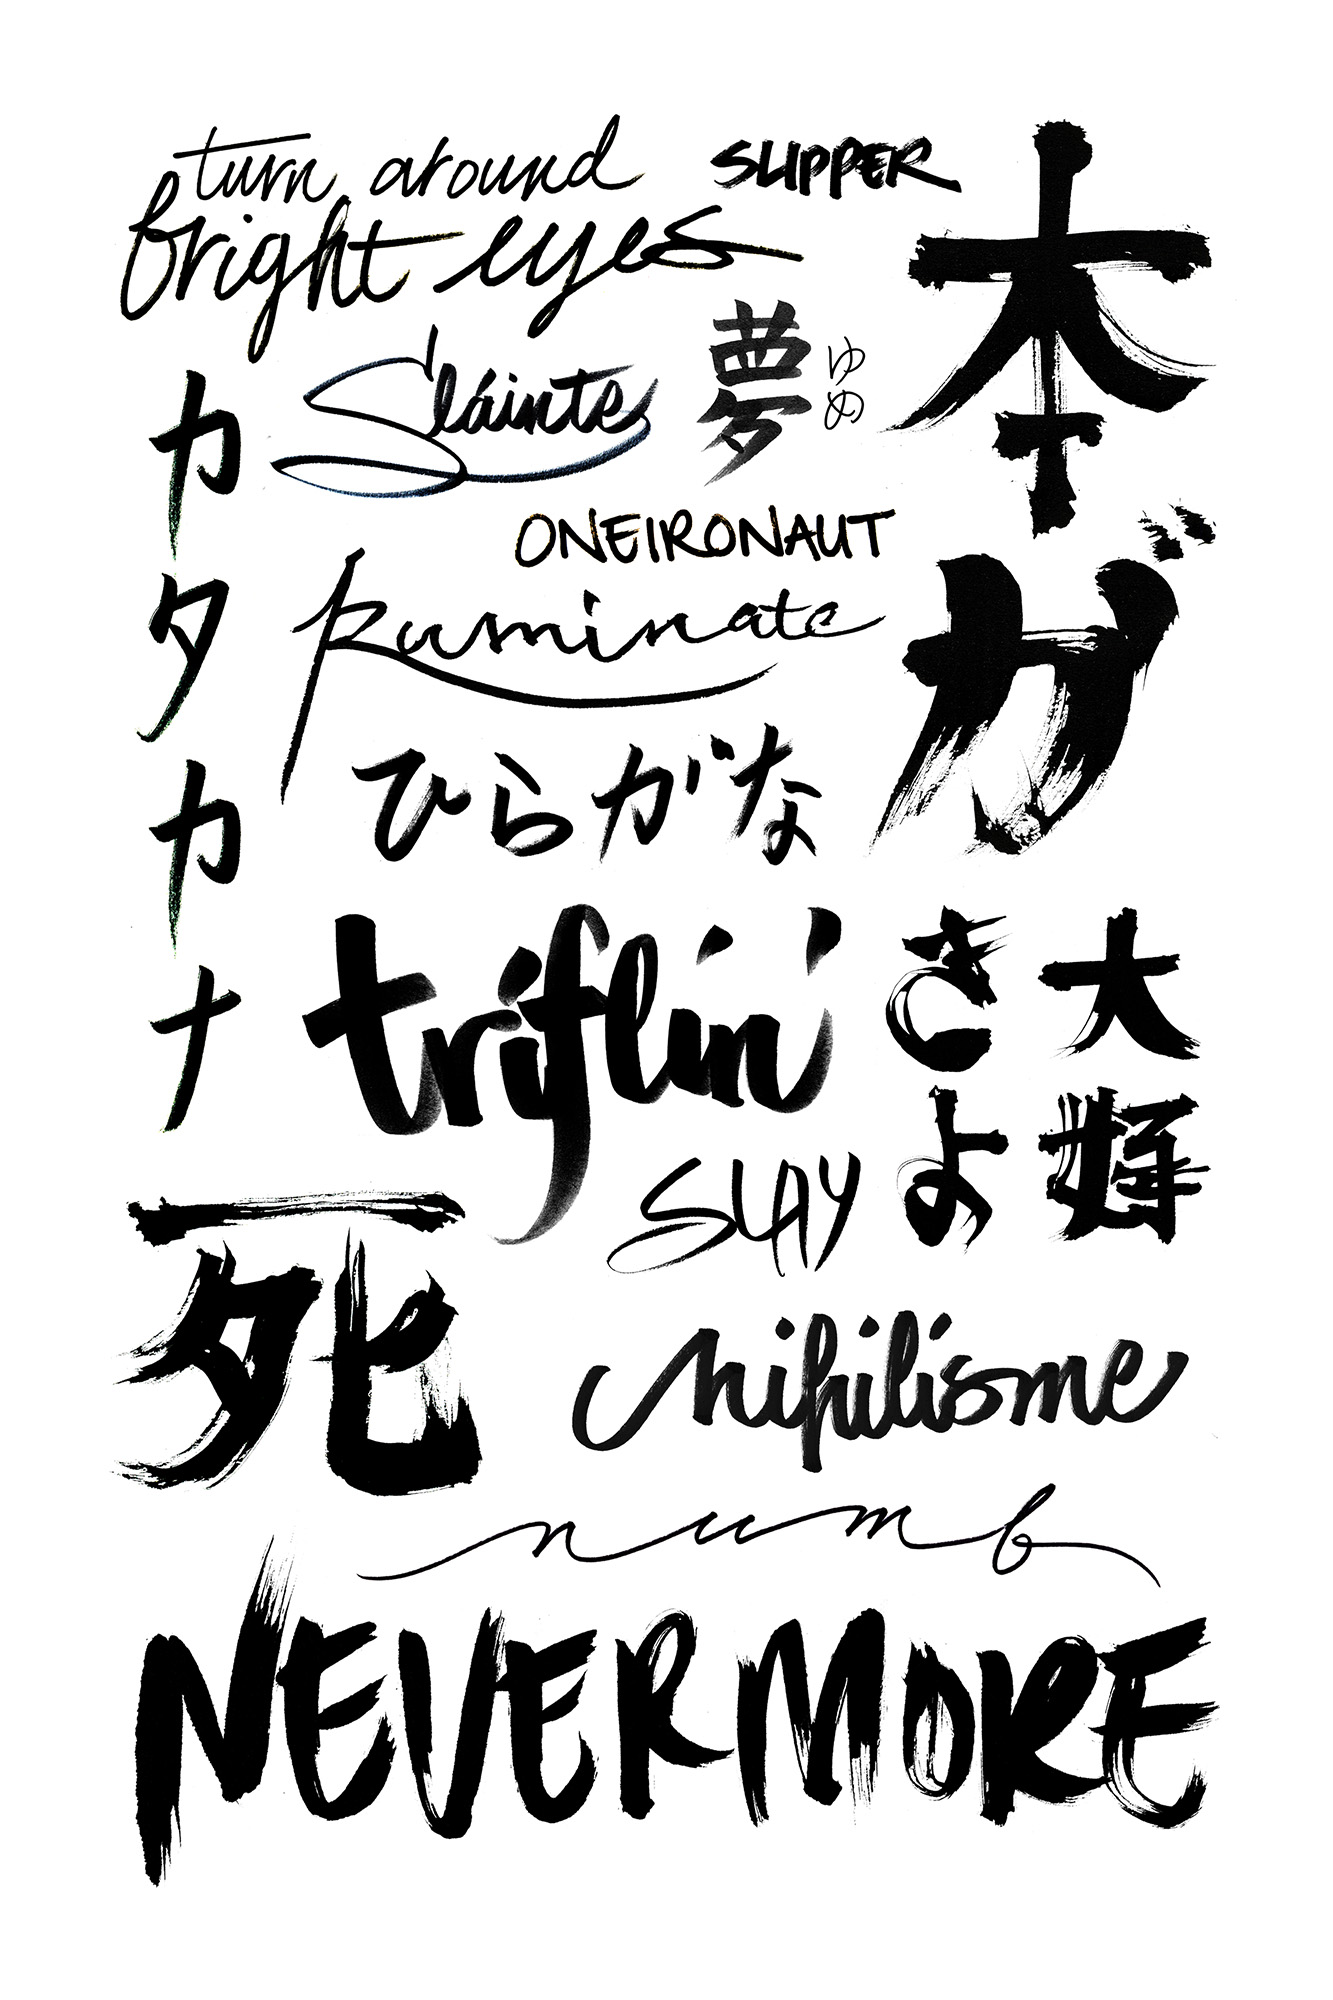 turn around
bright eyes
SLIPPER
本ガ
Sláinte
夢
ゆめ
カタカナ
ONEIRONAUT
Ruminate
ひらがな
triflin'
大
きよ
SLAY
死
nihilisme
numb
NEVERMORE